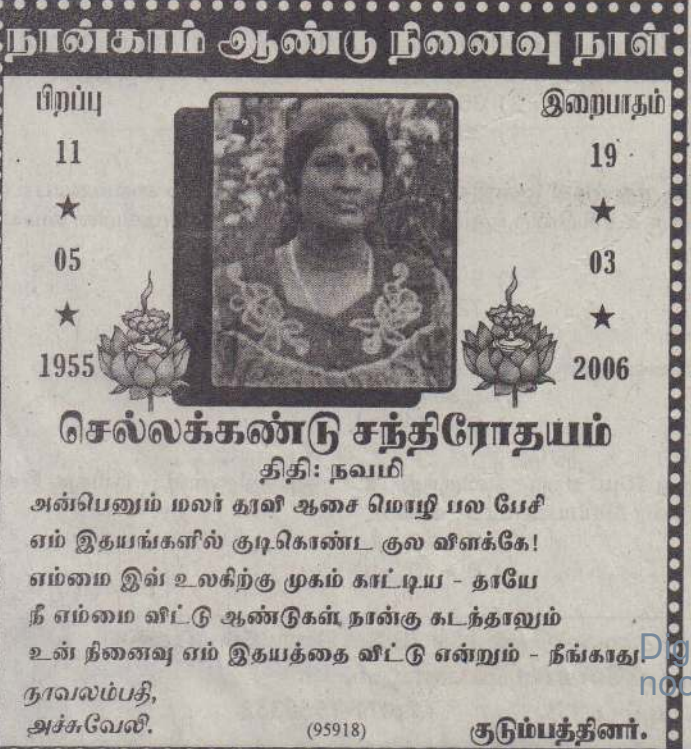 நான்காம் ஆண்டு நினைவு நாள்
பிறப்பு
11
★
05
★
1955
இறைபாதம்
19
★
03
★
2006
செல்லக்கண்டு சந்திரோதயம்
திதி: நவமி
அன்பெனும் மலர் தூவி ஆசை மொழி பல பேசி
எம் இதயங்களில் குடிகொண்ட குல விளக்கே!
எம்மை இவ் உலகிற்கு முகம் காட்டிய - தாயே
நீ எம்மை விட்டு ஆண்டுகள் நான்கு கடந்தாலும்
உன் நினைவு எம் இதயத்தை விட்டு என்றும் - நீங்காது.
நாவலம்பதி,
அச்சுவேலி.
(95918)
குடும்பத்தினர்.
Dig
noo